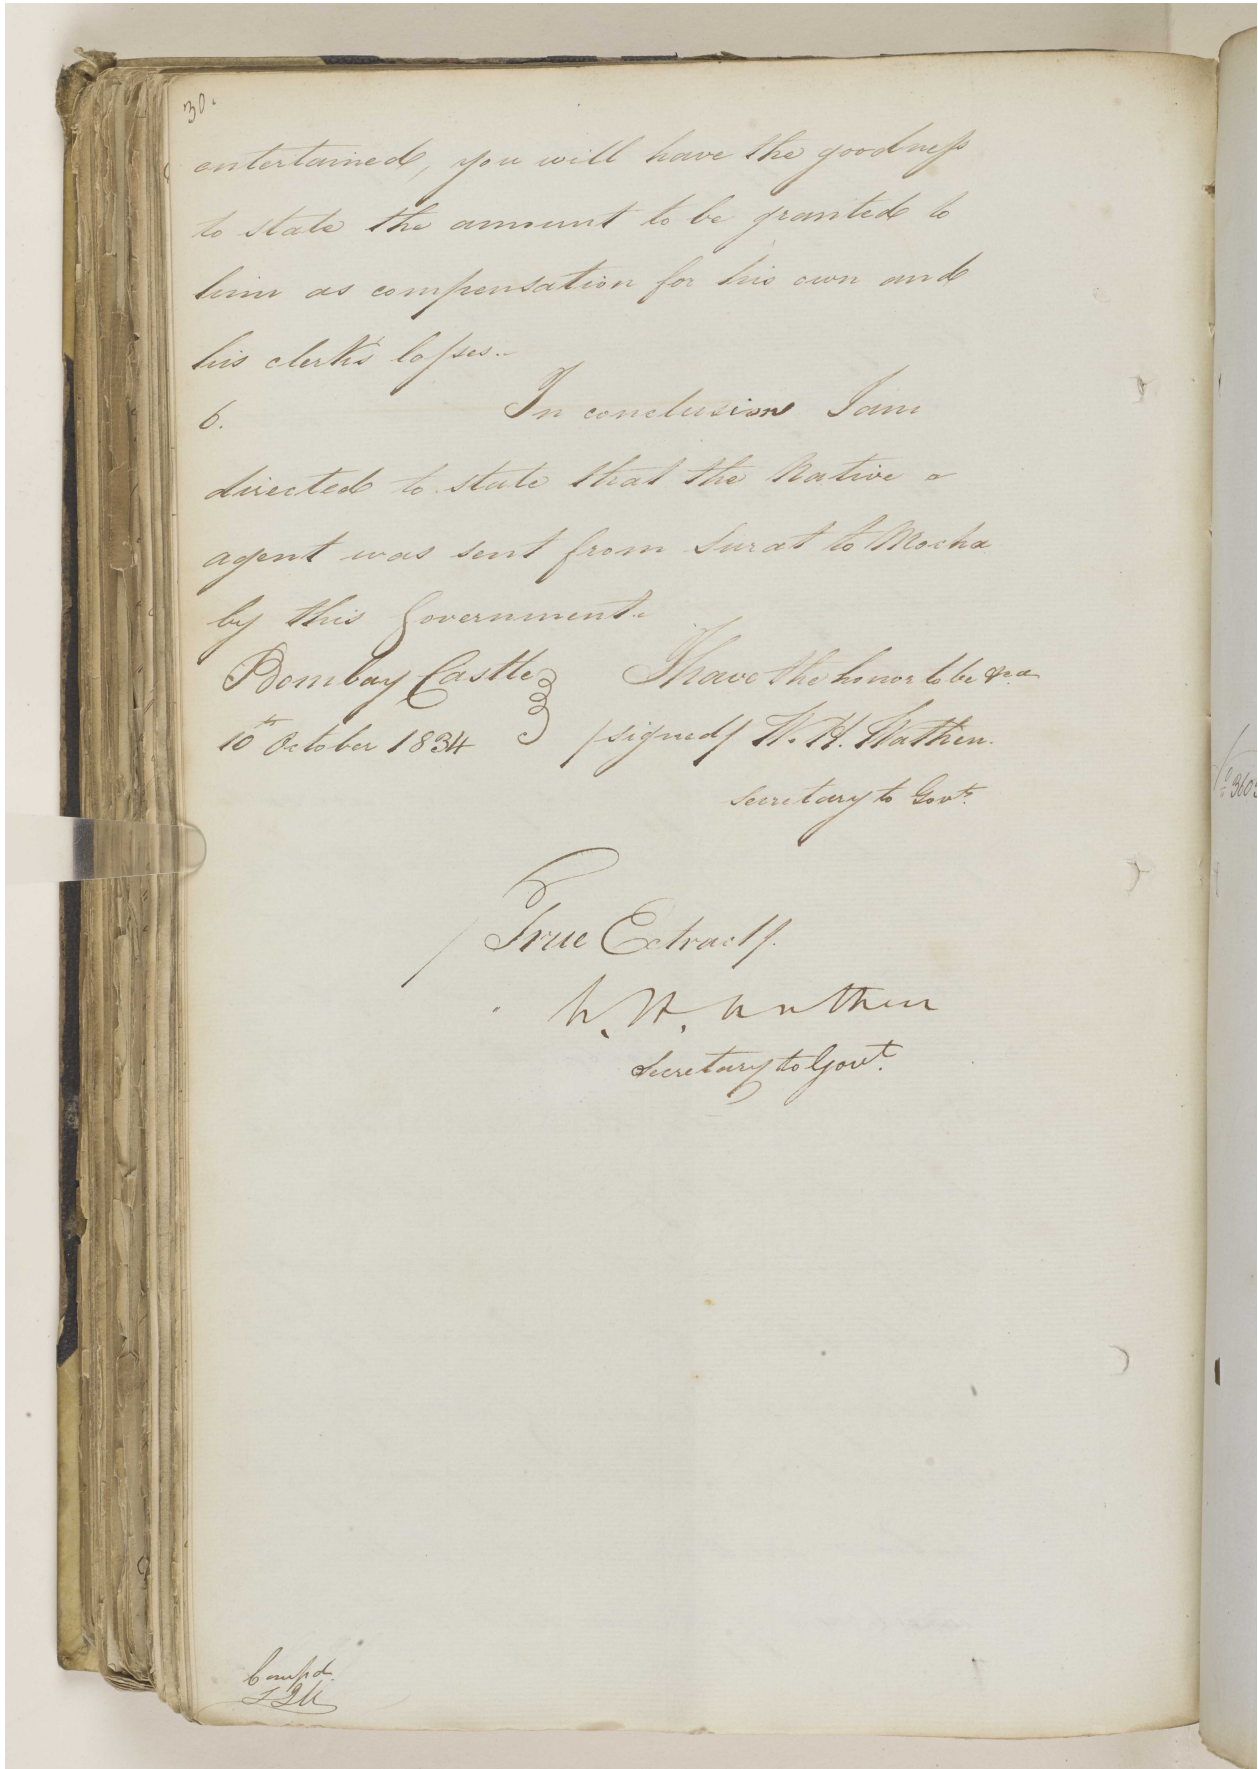 30.
entertained, you will have the goodness
to state the amount to be granted to
him as compensation for his own and
his clerk's losses.
6. In conclusion I am
directed to state that the Native
agent was sent from Surat to Mocha
by this Government.
Bombay Castle I have the honor to be &ca
10th October 1834 /signed/ W. H. Wathen.
Secretary to Govt.
/True Extract/.
W. H. Wathen
Secretary to Govt.
Comp'd.